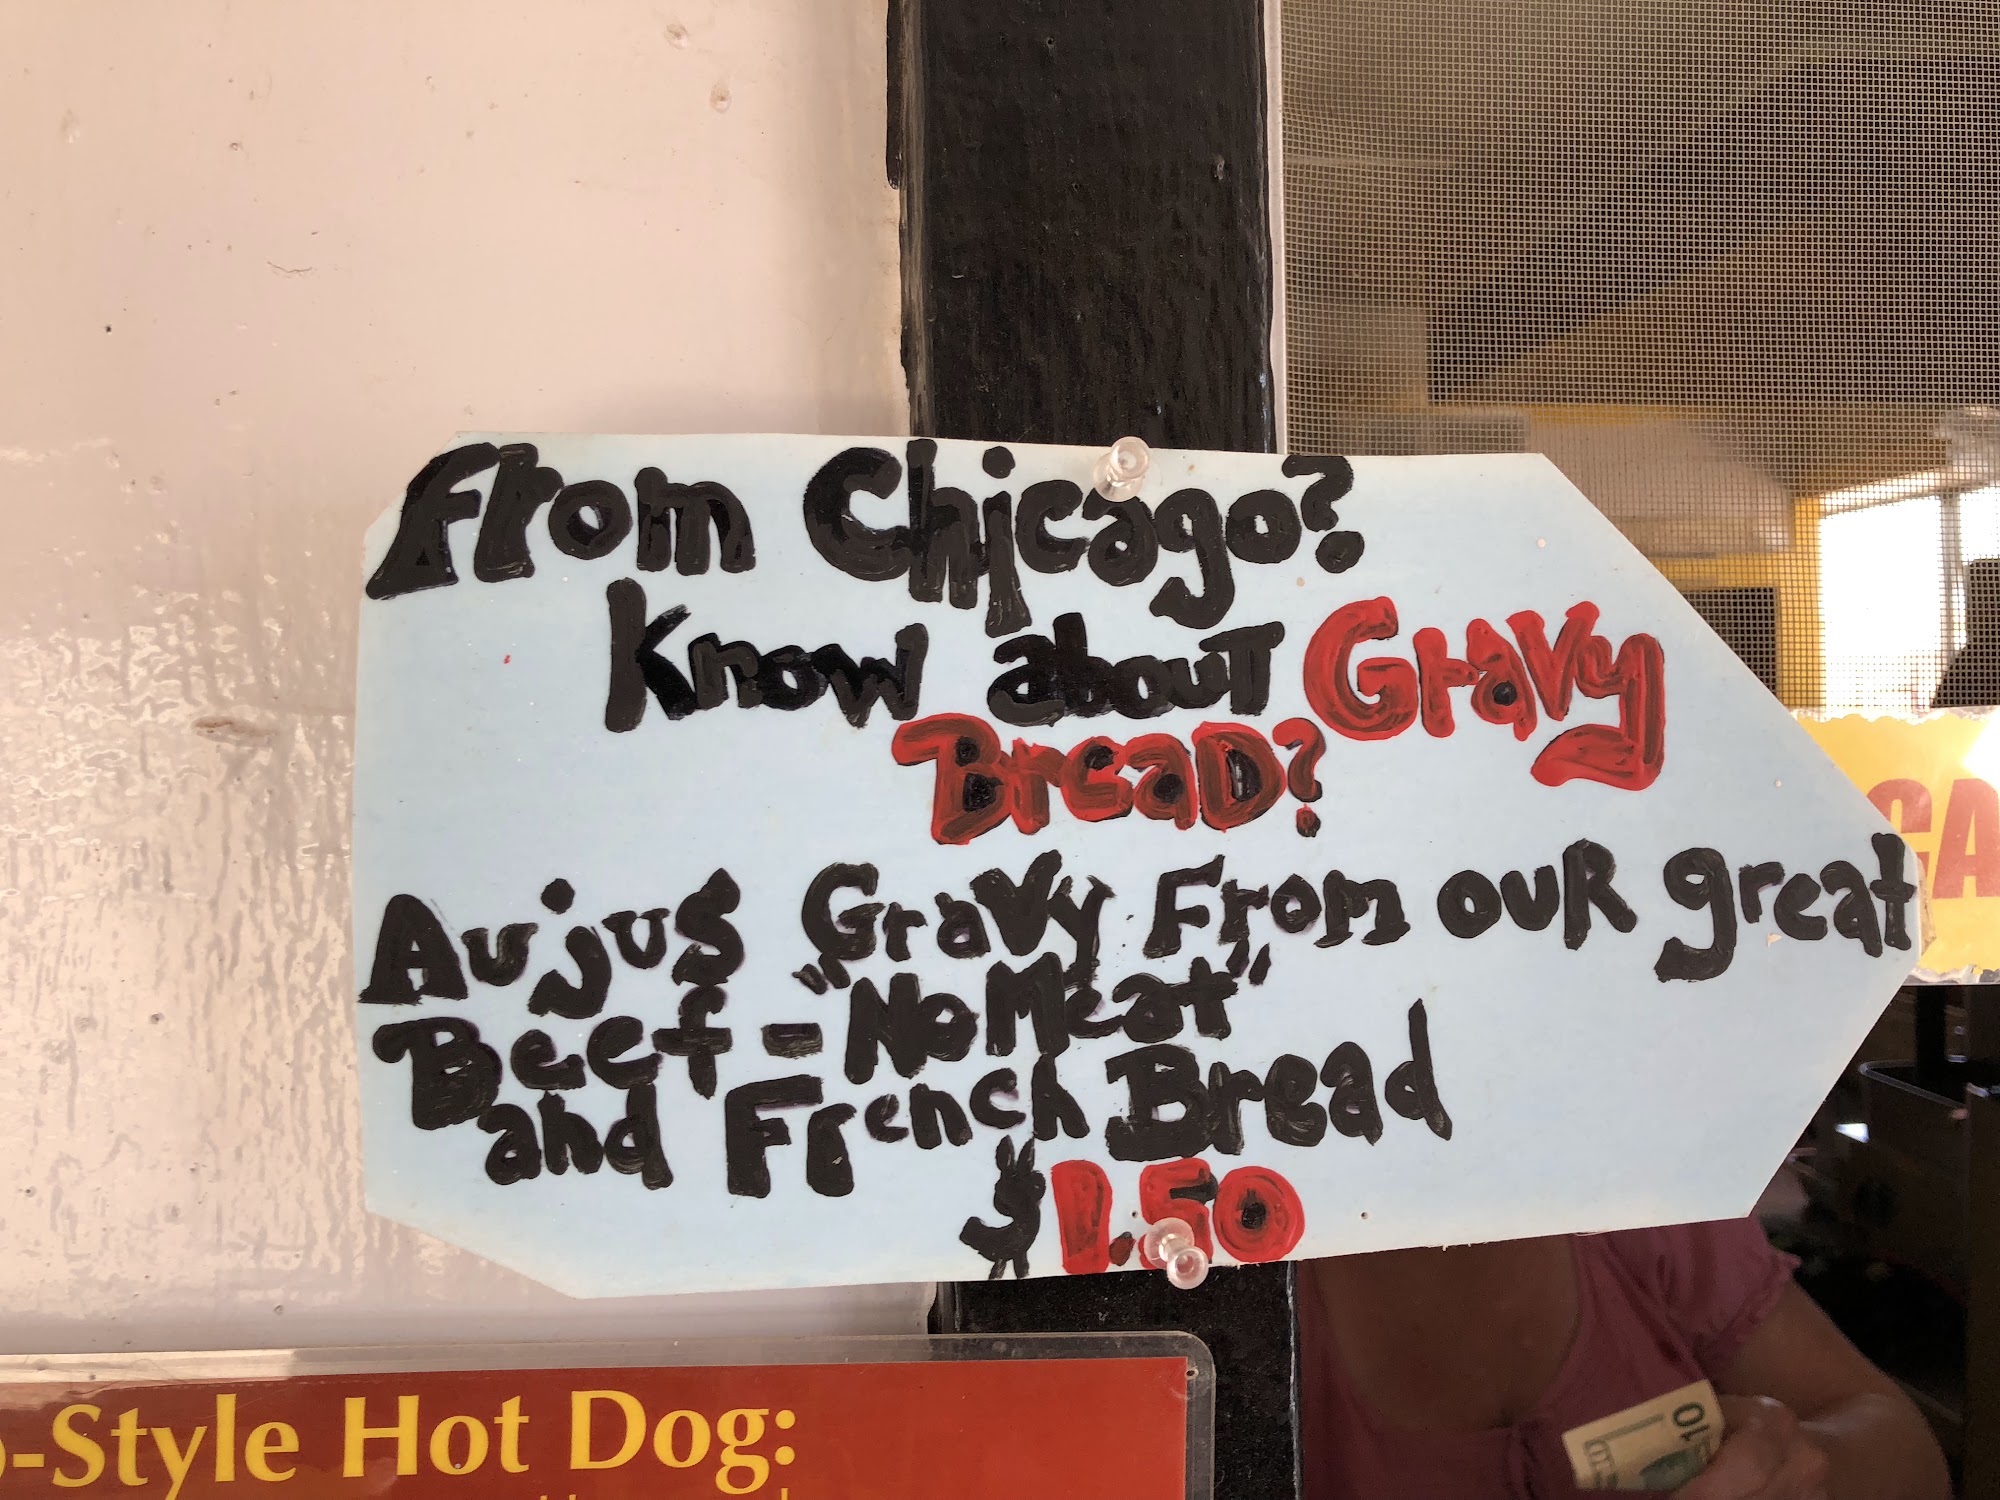 From Chicago?
Know about Gravy
Bread?
Aujus Gravy From our great
Beef - "No Meat"
and French Bread
$1.50
-Style Hot Dog:
CA
10